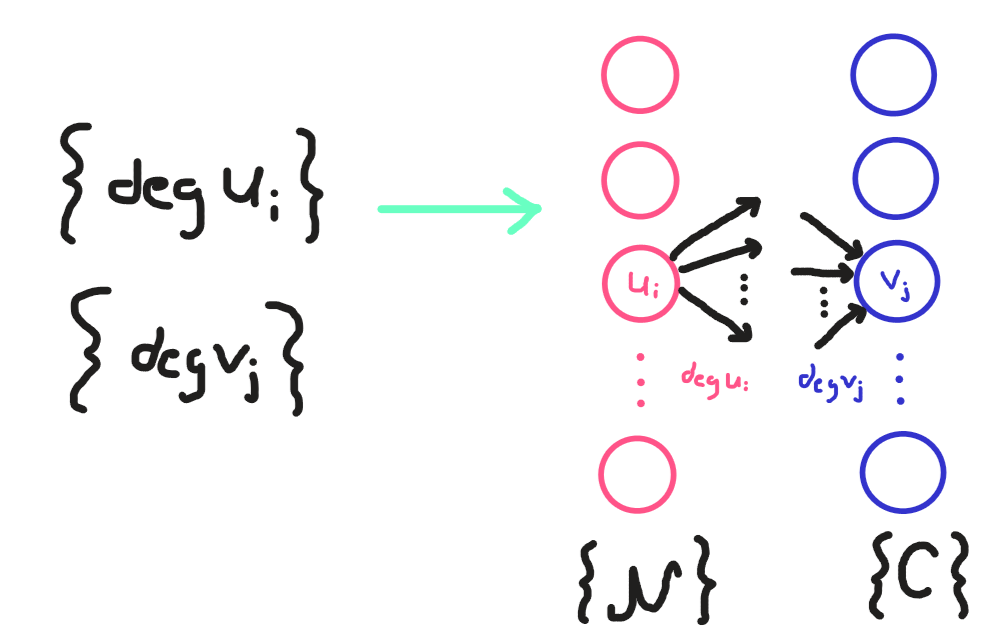 {deg u_i}
{deg v_j}
u_i
v_j
deg u_i
deg v_j
{N}
{C}